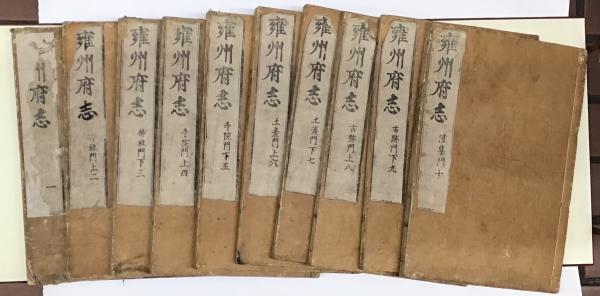 州府志
一
雍州府志
社門上二
雍州府志
神社門下三
雍州府志
寺院門上四
雍州府志
寺院門下五
雍州府志
土産門上六
雍州府志
土産門下七
雍州府志
古跡門上八
雍州府志
古跡門下九
雍州府志
陵墓門十